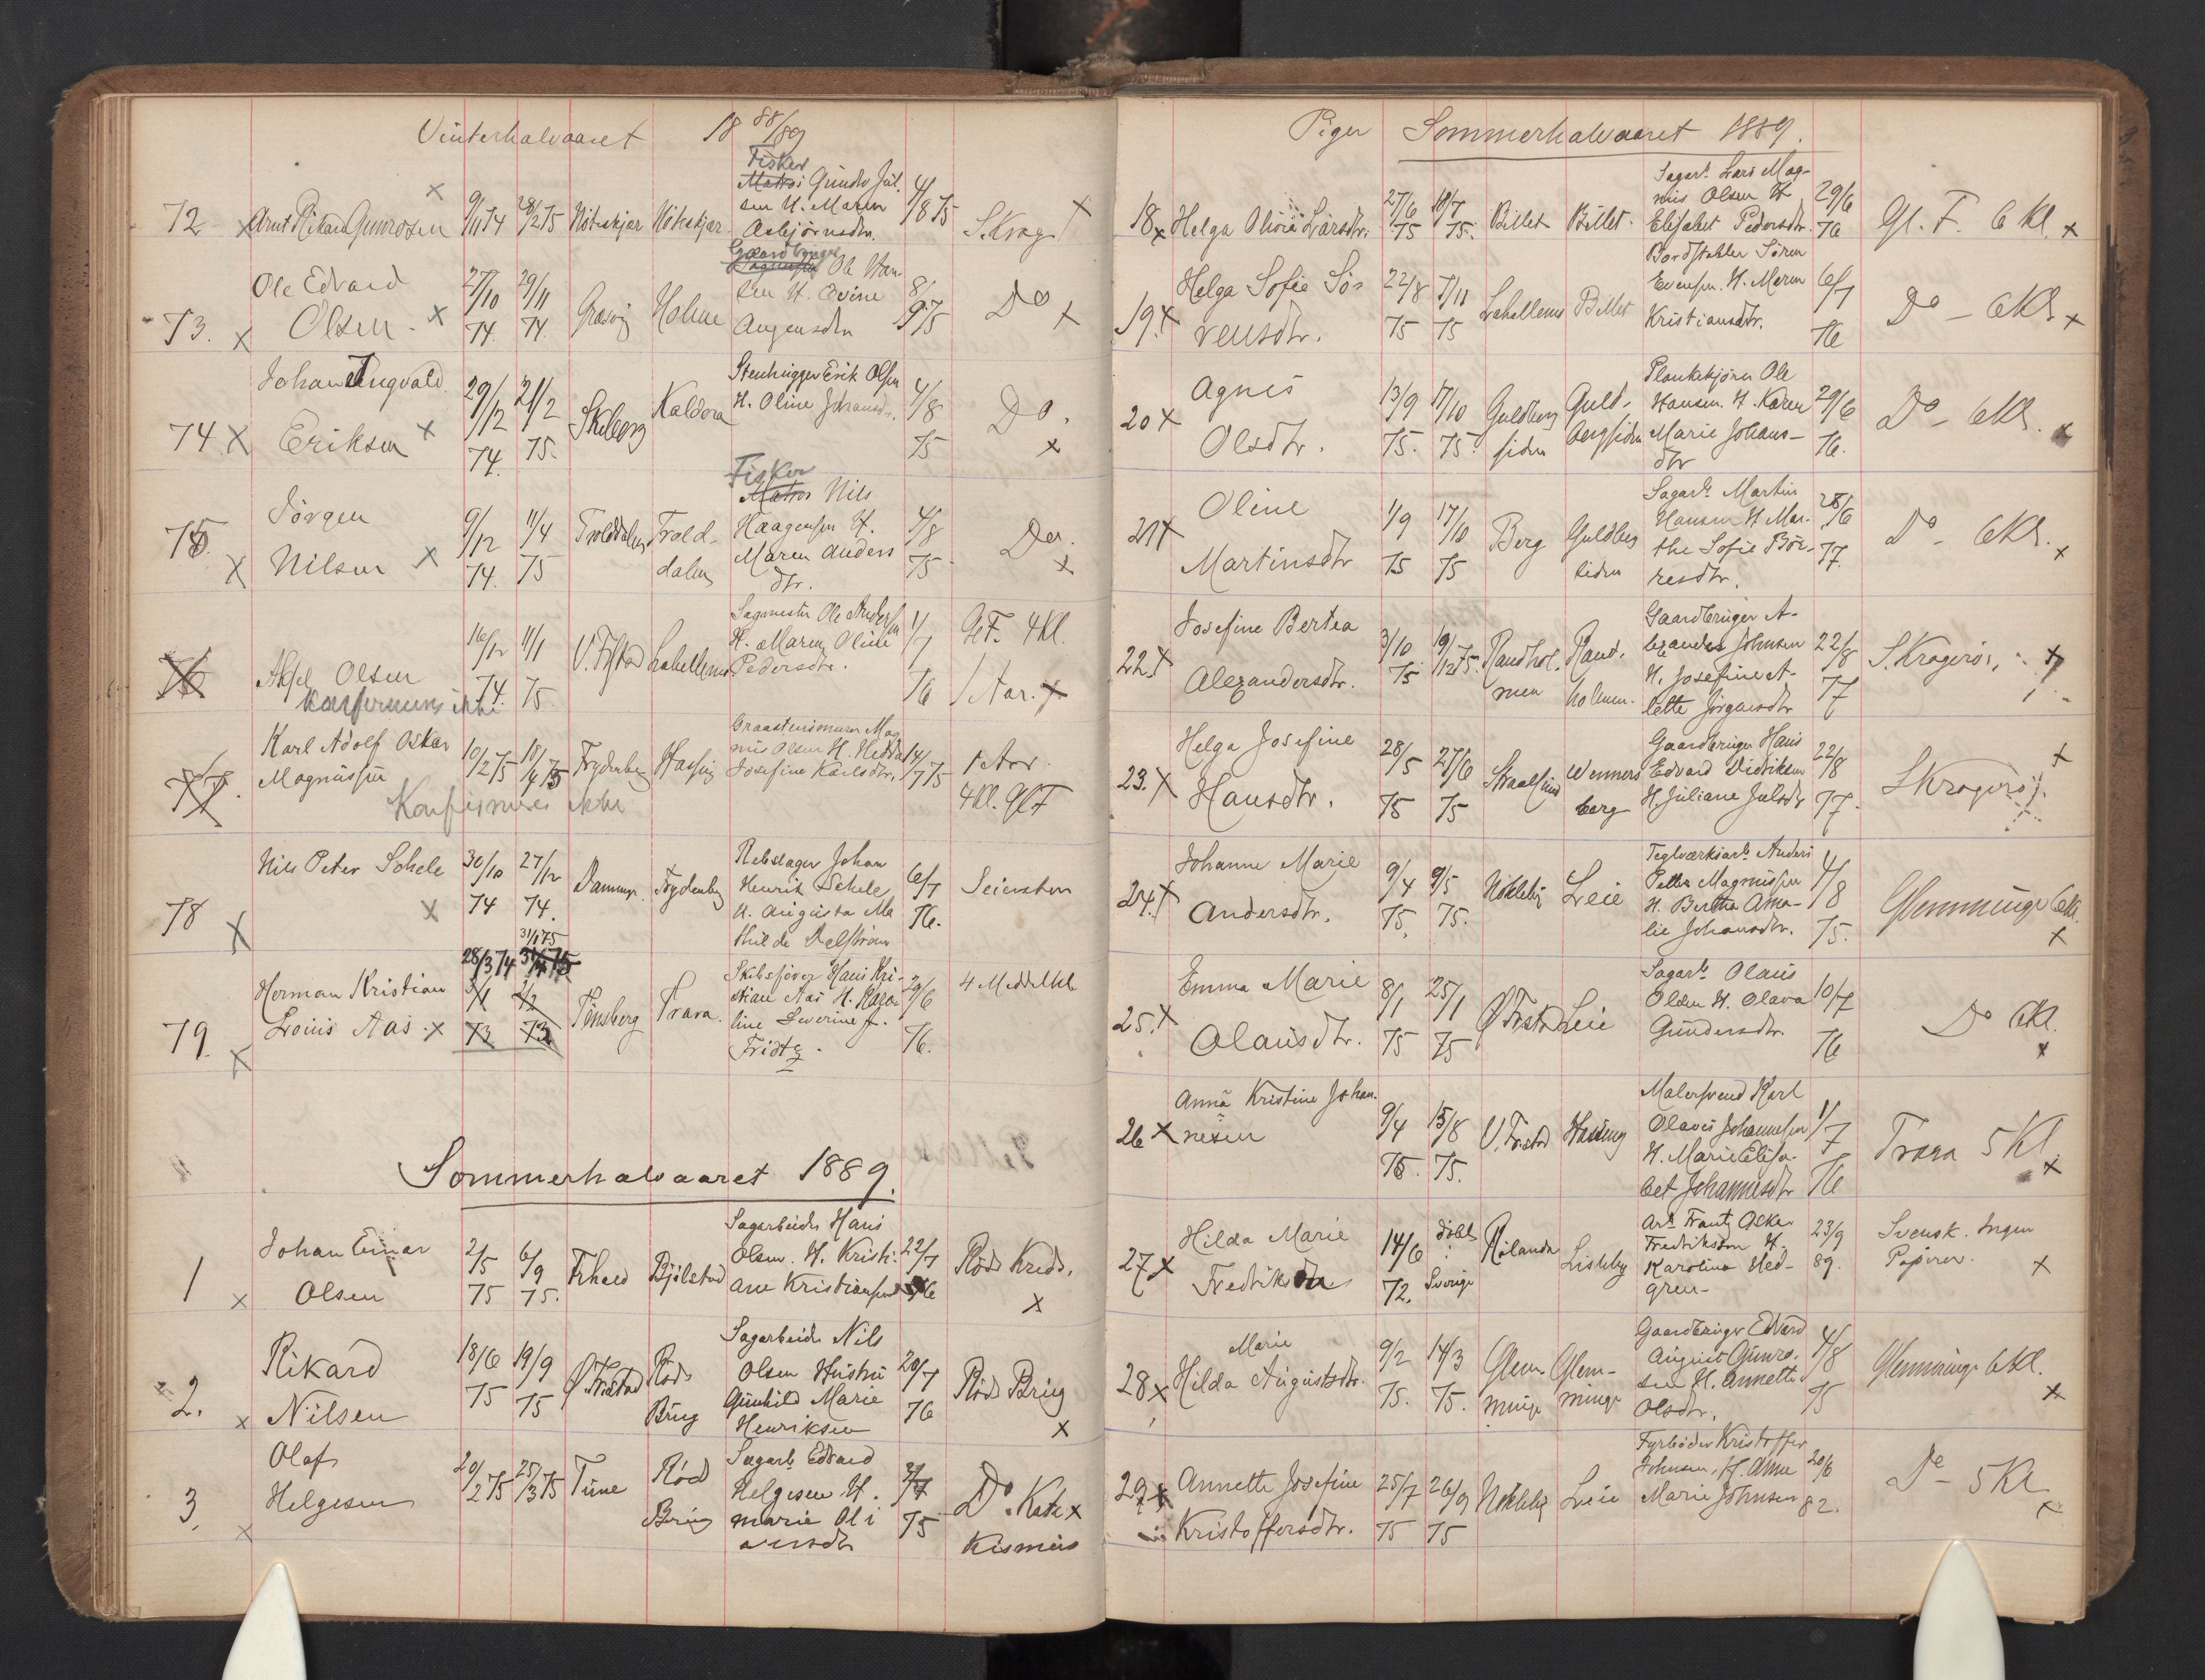 Vinterhalvaaret 18 88/89
72 x Arnt Rikard Gunrosen x 9/11 74 28/2 75 Nöteskjær Nöteskjær
Fisker
Matros Gunder Jul.
sen H. Maren
Asbjörnsdtr.
4/8 75 S. Krag. x
73. x Ole Edvard
Olsen. x
27/10 74. 29/11 74. Græsvig Holme
Gaardbruger
Ole Han-
sen H. Evine
Augensdtr
8/9 75 Do x
74 x Johan Ingvald
Eriksen x
29/12 74. 21/2 75. Skibby Kaldera
Stenhugger Erik Olsen
H. Oline Johansdtr.
4/8 75 Do. x
75. x Jörgen
Nilsen x
9/12 74. 11/4 75 Trolddalen Trold-
dalen
Fisker
Matros Nils
Haagensen H.
Maren Anders
dtr.
4/8 75 Do. x
76 Aksel Olsen
Konfirmeres ikke
16/12 74. 11/1 75 V. Frstad Lahellemo
Sagmester Ole Andersen
H. Maren Oline
Pedersdtr.
1/7 76 Gl.F. 4 Kl.
1 Aar. x
77. Karl Adolf Oskar
Magnussen
Konfirmeres ikke
10/2 75 18/4 75 Frydenberg Hassing
Graastensmurer Mag
nus Olsen H. Hedda
Josefine Karlsdtr.
14/7 75 1 Aar.
4 Kl. Gl F
78 x Nils Peter Schele x
30/10 74 27/12 74. Damminge. Frydenberg
Rebslager Johan
Henrik Schele
H. Augusta Ma
thilde Dalström
6/7 76. Seiersten
79. x Herman Kristian
Louis Aas. x
28/3 74 31/1 75
3/1 73 2/2 73 Tönsberg Trara.
Skibsförer Hans Kri-
stian Aas H. Karo-
line Severine f.
Fridtz.
29/6 76. 4 Meddelkl.
Sommerhalvaaret 1889.
1 x Johan Einar
Olsen
2/5 75 6/9 75. Frhald Bjölstad
Sagarbeider Hans
Olsen. H. Kristi-
ane Kristiansen
22/7 76 Röds Kreds.
x
2. x Rikard
Nilsen
18/6 75 19/9 75 Ø Frstad Röds
Brug
Sagarbeider Nils
Olsen Hustru
Gunhild Marie
Henriksen
20/7 76 Röds Brug
x
3. x Olaf
Helgesen
20/2 75 25/3 75 Tune Röd
Brug
Sagarb. Edvard
Helgesen H.
Marie Oli
versdtr
75 Do. Kate x
kismus
Piger Sommerhalvaaret 1889.
18 x Helga Olivia Larsdtr. 27/6 75 18/7 75. Billet Billet.
Sagarb. Lars Mag-
nus Olsen H
Elisabet Pedersdtr.
29/6 76 Gl. F. 6 Kl. x
19. x Helga Sofie Sö-
rensdtr.
22/8 75 7/11 75 Lahellemo Billet
Bordstabler Sören
Evensen. H. Maren
Kristiansdtr.
6/7 76 Do - 6 Kl. x
20 x Agnes
Olsdtr.
13/9 75. 17/10 75. Guldberg
siden Guld-
bergsiden
Plankekjörer Ole
Hansen. H. Karen
Marie Johans-
dtr
29/6 76. Do - 6 Kl. x
21 x Oline
Martinsdtr
1/9 75 17/10 75 Berg Guldberg
siden
Sagarb. Martin
Hansen H Mar-
the Sofie Bör-
resdtr.
28/6 77. Do - 6 Kl. x
22. x Josefine Bertea
Alexandersdtr.
3/10 75 19/12 75. Randhol-
men Rand-
holmen.
Gaardbruger A-
lexander Johnsen
H. Josefine A-
lette Jörgensdtr
22/8 77 S. Krogerös. x
23. x Helga Josefine
Hansdtr.
28/5 75 27/6 75 Straalsund Wenners
berg
Gaardbruger Hans
Edvard Didriksen
H. Juliane Julsdtr
22/8 77. S Krogerös. x
24. x Johanne Marie
Andersdtr.
9/4 75. 9/5 75. Nökleby Leie
Teglværksarb. Anders
Petter Magnussen
H. Bertha Ama-
lie Johansdtr.
4/8 75. Glemminge 6 Kl.
x
25. x Emma Marie
Olausdtr.
8/1 75 25/1 75 Ø Frstd Leie
Sagarb. Olaus
Olsen H. Olava
Gundersdtr.
10/7 76 Do 6 Kl.
x
26 x Anna Kristine Johan-
nesen
9/4 75. 15/8 75. V. Frstad Hassing
Malersvend Karl
Olaves Johannesen
H. Marie Elisa-
bet Johannesdtr
1/7 76 Trara 5 Kl.
x
27 x Hilda Marie
Fredriksdtr
14/6 72. döbt
i
Sverige Rolanda Lisleby
Arb. Frantz Oskar
Fredriksson H.
Karolina Hed-
gren-
23/9 89. Svensk. Ingen
Papirer. x
28 x Marie
Hilda Augustsdtr.
9/2 75. 14/3 75. Glem
minge Glem-
minge
Gaardbruger Edvard
August Gunro-
sen H. Annette
Olsdtr.
4/8 75 Glemminge 6 Kl.
x
29 x Annette Josefine
Kristoffersdtr.
25/7 75 26/9 75 Nökleby Leie
Fyrböder Kristoffer
Johnsen, H. Anne
Marie Johnsen
20/6 82. Do - 5 Kl
x